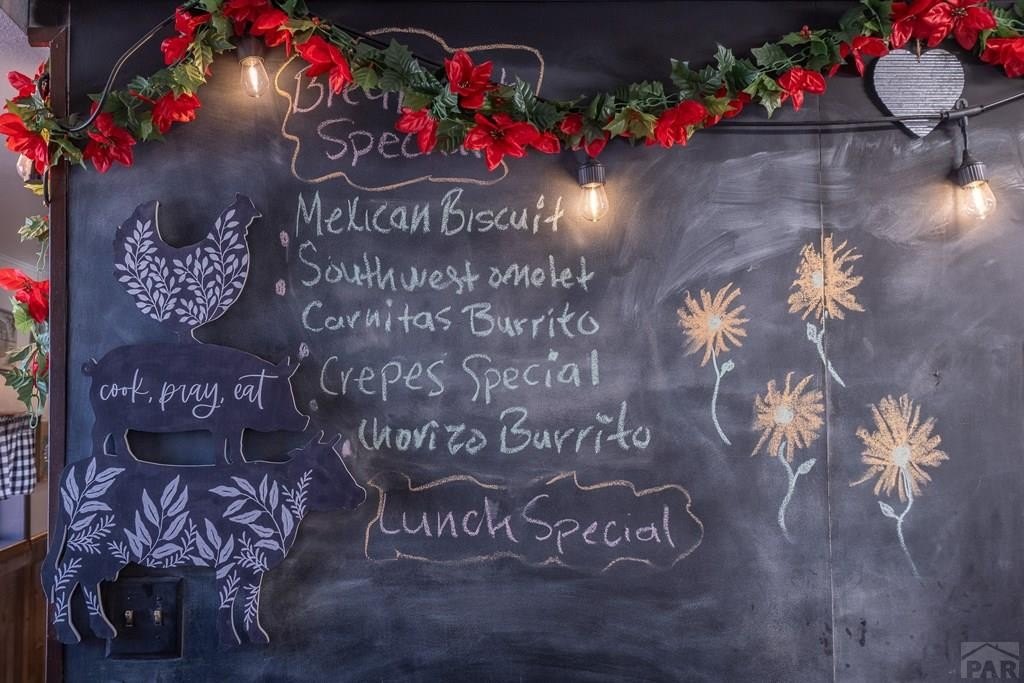 Special
Mexican Biscuit
Southwest omolet
Carnitas Burrito
Crepes Special
chorizo Burrito
Lunch Special
cook, pray, eat
PAR